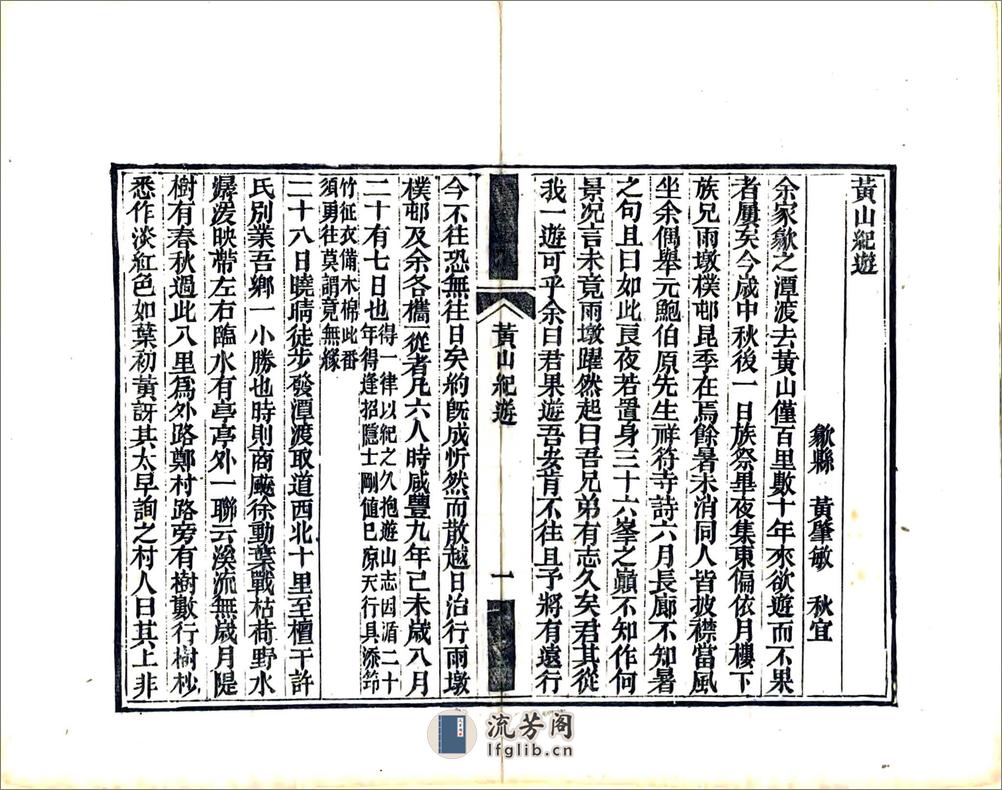 黃山紀遊
歙縣 黃肇敏 秋宜
余家歙之潭渡去黃山僅百里數十年來欲遊而不果
者屢矣今歲中秋後一日族祭畢夜集東偏依月樓下
族兄雨墩樸邨昆季在焉餘暑未消同人皆披襟當風
坐余偶舉元鮑伯原先生祥符寺詩六月長廊不知暑
之句且曰如此良夜若置身三十六峯之巔不知作何
景況言未竟雨墩躍然起曰吾兄弟有志久矣君其從
我一遊可乎余曰君果遊吾安肯不往且予將有遠行
黃山紀遊
一
今不往恐無往日矣約旣成忻然而散越日治行雨墩
樸邨及余各攜一從者凡六人時咸豐九年己未歲八月
二十有七日也得一律以紀之久抱遊山志因循二十
年得逢招隱士剛値已涼天行具添筇
竹征衣備木棉此番
須勇往莫謂竟無緣
二十八日曉晴徒步發潭渡取道西北十里至檀干許
氏別業吾鄉一小勝也時則商飈徐動葉戰枯荷野水
潺湲映帶左右臨水有亭亭外一聯云溪流無歲月隄
樹有春秋過此八里爲外路鄭村路旁有樹數行樹杪
悉作淡紅色如葉初黃訝其太早詢之村人曰其上非
流芳阁
lfglib.cn